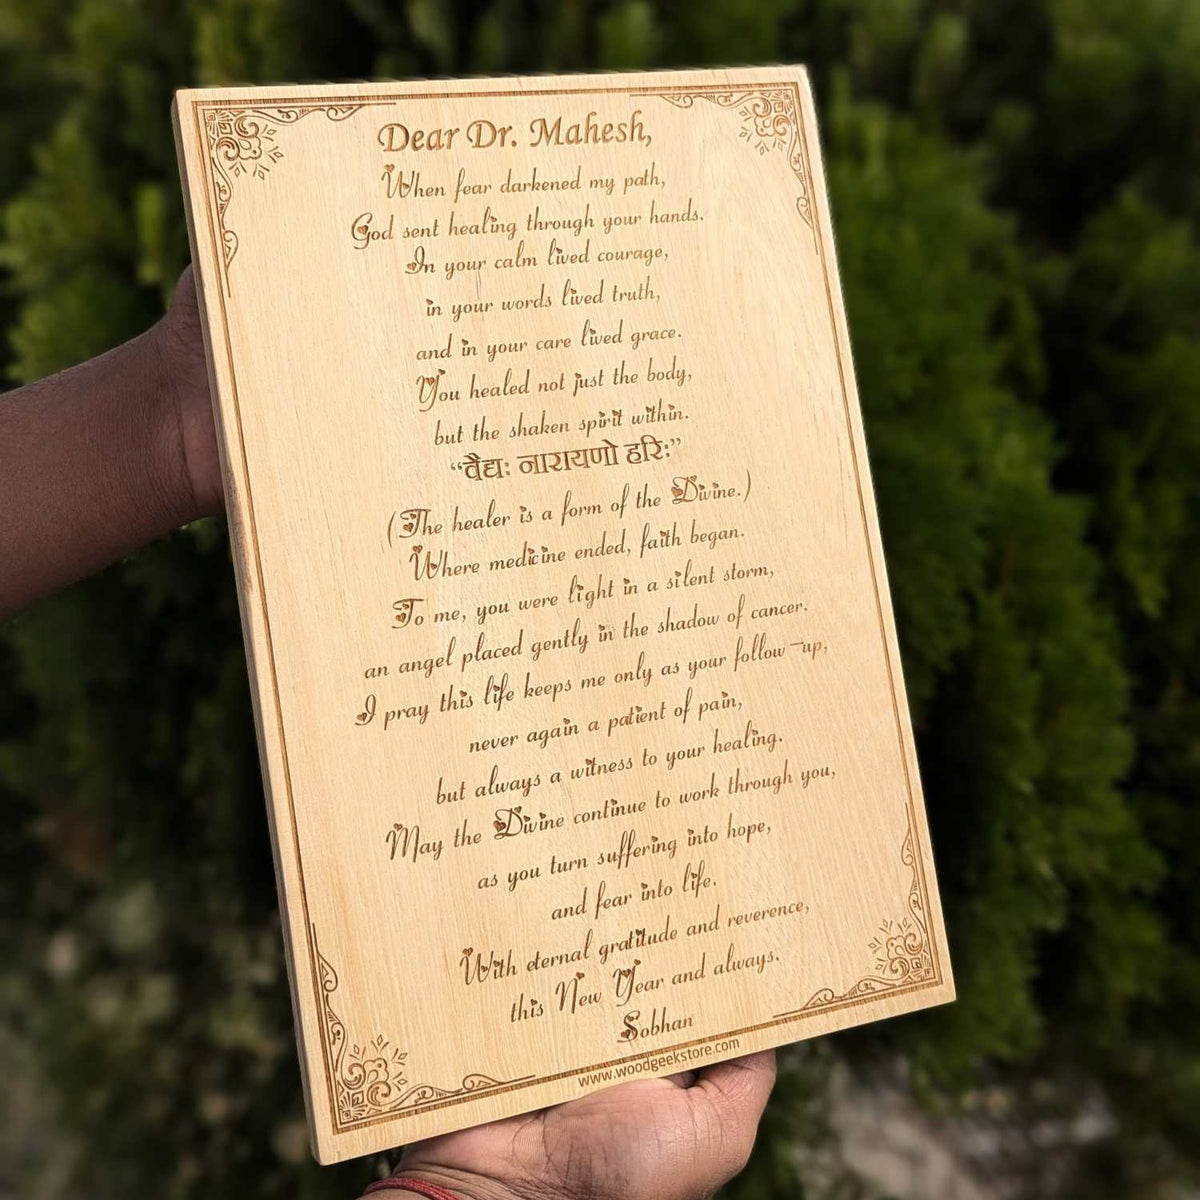 Dear Dr. Mahesh,
When fear darkened my path,
God sent healing through your hands.
In your calm lived courage,
in your words lived truth,
and in your care lived grace.
You healed not just the body,
but the shaken spirit within.
“वैद्यः नारायणो हरिः”
(The healer is a form of the Divine.)
Where medicine ended, faith began.
To me, you were light in a silent storm,
an angel placed gently in the shadow of cancer.
I pray this life keeps me only as your follow-up,
never again a patient of pain,
but always a witness to your healing.
May the Divine continue to work through you,
as you turn suffering into hope,
and fear into life.
With eternal gratitude and reverence,
this New Year and always.
Sobhan
www.woodgeekstore.com